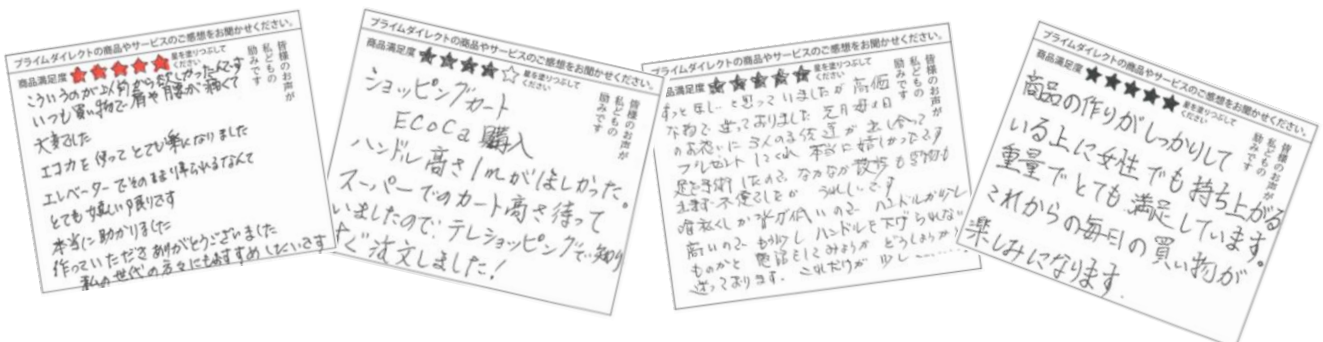 プライムダイレクトの商品やサービスのご感想をお聞かせください。
商品満足度 ★★★★★ 星を塗りつぶして
ください
皆様のお声が
私どもの
励みです
こういうのが以前から欲しかったんです
いつも買い物で肩や腰が痛くて
大変でした
エコカを使ってとても楽になりました
エレベーターでそのまま乗られるなんて
とても嬉しい限りです
本当に助かりました
作っていただきありがとうございました
私の世代の方々にもおすすめしたいです
プライムダイレクトの商品やサービスのご感想をお聞かせください。
商品満足度 ★★★★☆ 星を塗りつぶして
ください
皆様のお声が
私どもの
励みです
ショッピングカート
ECOCa 購入
ハンドル高さ1mがほしかった。
スーパーでのカート高さ待って
いましたので、テレショッピングで知り
すぐ注文しました!
プライムダイレクトの商品やサービスのご感想をお聞かせください。
商品満足度 ★★★★★ 星を塗りつぶして
ください
皆様のお声が
私どもの
励みです
ずっとほしーと思っていましたが高価
な物で迷っておりました 母の日
のお祝いに3人の子供達が出し合って
プレゼントしてくれ本当に嬉しかったです
足を手術したので、なかなか散歩も買物も
うれしいです
背が低いので ハンドルが少し
高いので もう少しハンドルを下げられない
ものかと電話をしてみようかどうしようか
迷っております。これだけが少し………
プライムダイレクトの商品やサービスのご感想をお聞かせください。
商品満足度 ★★★★★ 星を塗りつぶして
ください
皆様のお声が
私どもの
励みです
商品の作りがしっかりして
いる上に女性でも持ち上がる
重量でとても満足しています。
これからの毎日の買い物が
楽しみになります.